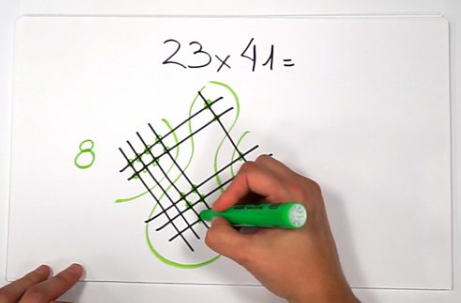 23x41=
8